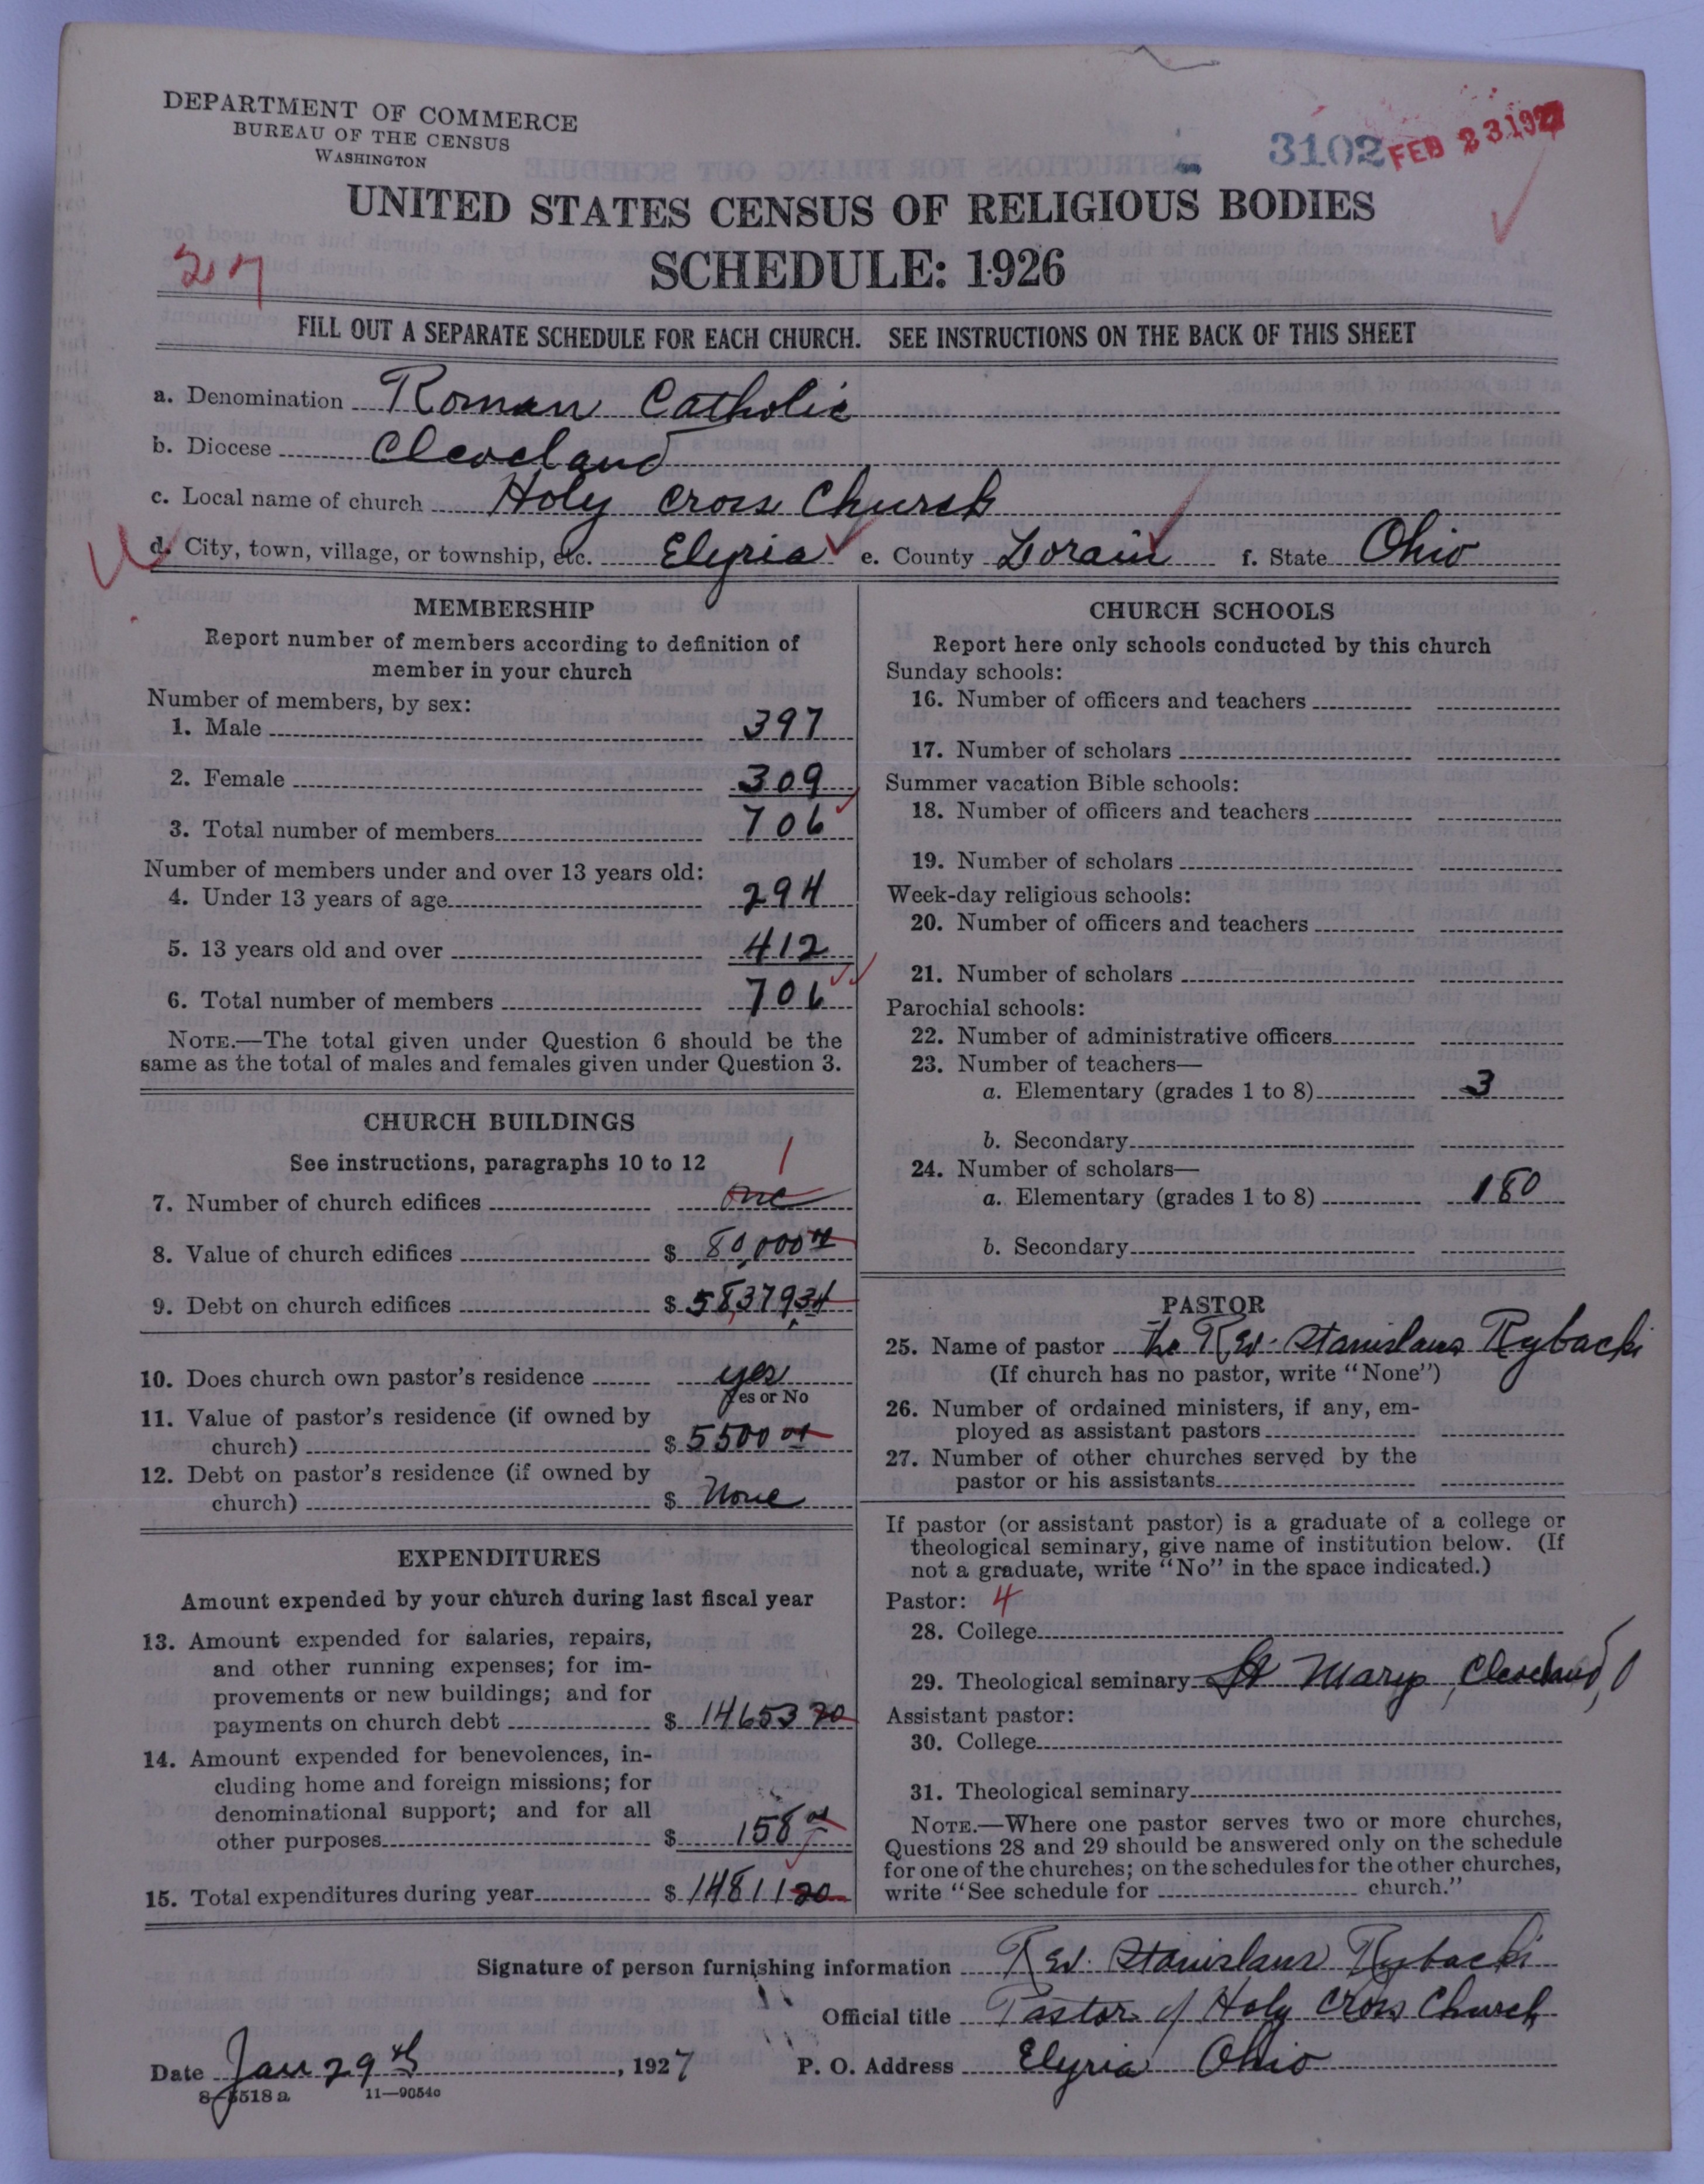 DEPARTMENT OF COMMERCE
BUREAU OF THE CENSUS
WASHINGTON
3102
FEB 23 1927
UNITED STATES CENSUS OF RELIGIOUS BODIES
SCHEDULE: 1926
FILL OUT A SEPARATE SCHEDULE FOR EACH CHURCH. SEE INSTRUCTIONS ON THE BACK OF THIS SHEET
a. Denomination Roman Catholic
b. Diocese Cleveland
c. Local name of church Holy Cross Church
d. City, town, village, or township, etc. Elyria e. County Lorain f. State Ohio
MEMBERSHIP
Report number of members according to definition of
member in your church
Number of members, by sex:
1. Male 397
2. Female 309
3. Total number of members 706
Number of members under and over 13 years old:
4. Under 13 years of age 294
5. 13 years old and over 412
6. Total number of members 706
NOTE.—The total given under Question 6 should be the
same as the total of males and females given under Question 3.
CHURCH BUILDINGS
See instructions, paragraphs 10 to 12
1
7. Number of church edifices one
8. Value of church edifices $ 80,000 00
9. Debt on church edifices $ 58,379 34
10. Does church own pastor's residence yes
Yes or No
11. Value of pastor's residence (if owned by
church) $ 5500 00
12. Debt on pastor's residence (if owned by
church) $ None
EXPENDITURES
Amount expended by your church during last fiscal year
13. Amount expended for salaries, repairs,
and other running expenses; for im-
provements or new buildings; and for
payments on church debt $ 14653 20
14. Amount expended for benevolences, in-
cluding home and foreign missions; for
denominational support; and for all
other purposes $ 158 00
15. Total expenditures during year $ 14811 20
CHURCH SCHOOLS
Report here only schools conducted by this church
Sunday schools:
16. Number of officers and teachers
17. Number of scholars
Summer vacation Bible schools:
18. Number of officers and teachers
19. Number of scholars
Week-day religious schools:
20. Number of officers and teachers
21. Number of scholars
Parochial schools:
22. Number of administrative officers
23. Number of teachers—
a. Elementary (grades 1 to 8) 3
b. Secondary
24. Number of scholars—
a. Elementary (grades 1 to 8) 180
b. Secondary
PASTOR
25. Name of pastor the Rev. Stanislaus Rybacki
(If church has no pastor, write "None")
26. Number of ordained ministers, if any, em-
ployed as assistant pastors
27. Number of other churches served by the
pastor or his assistants
If pastor (or assistant pastor) is a graduate of a college or
theological seminary, give name of institution below. (If
not a graduate, write "No" in the space indicated.)
Pastor: 4
28. College
29. Theological seminary St Marys, Cleveland, O
Assistant pastor:
30. College
31. Theological seminary
NOTE.—Where one pastor serves two or more churches,
Questions 28 and 29 should be answered only on the schedule
for one of the churches; on the schedules for the other churches,
write "See schedule for church."
Signature of person furnishing information Rev. Stanislaus Rybacki
Official title Pastor of Holy Cross Church
Date Jan 29th, 1927 P. O. Address Elyria Ohio
8-5518 a 11—9054c